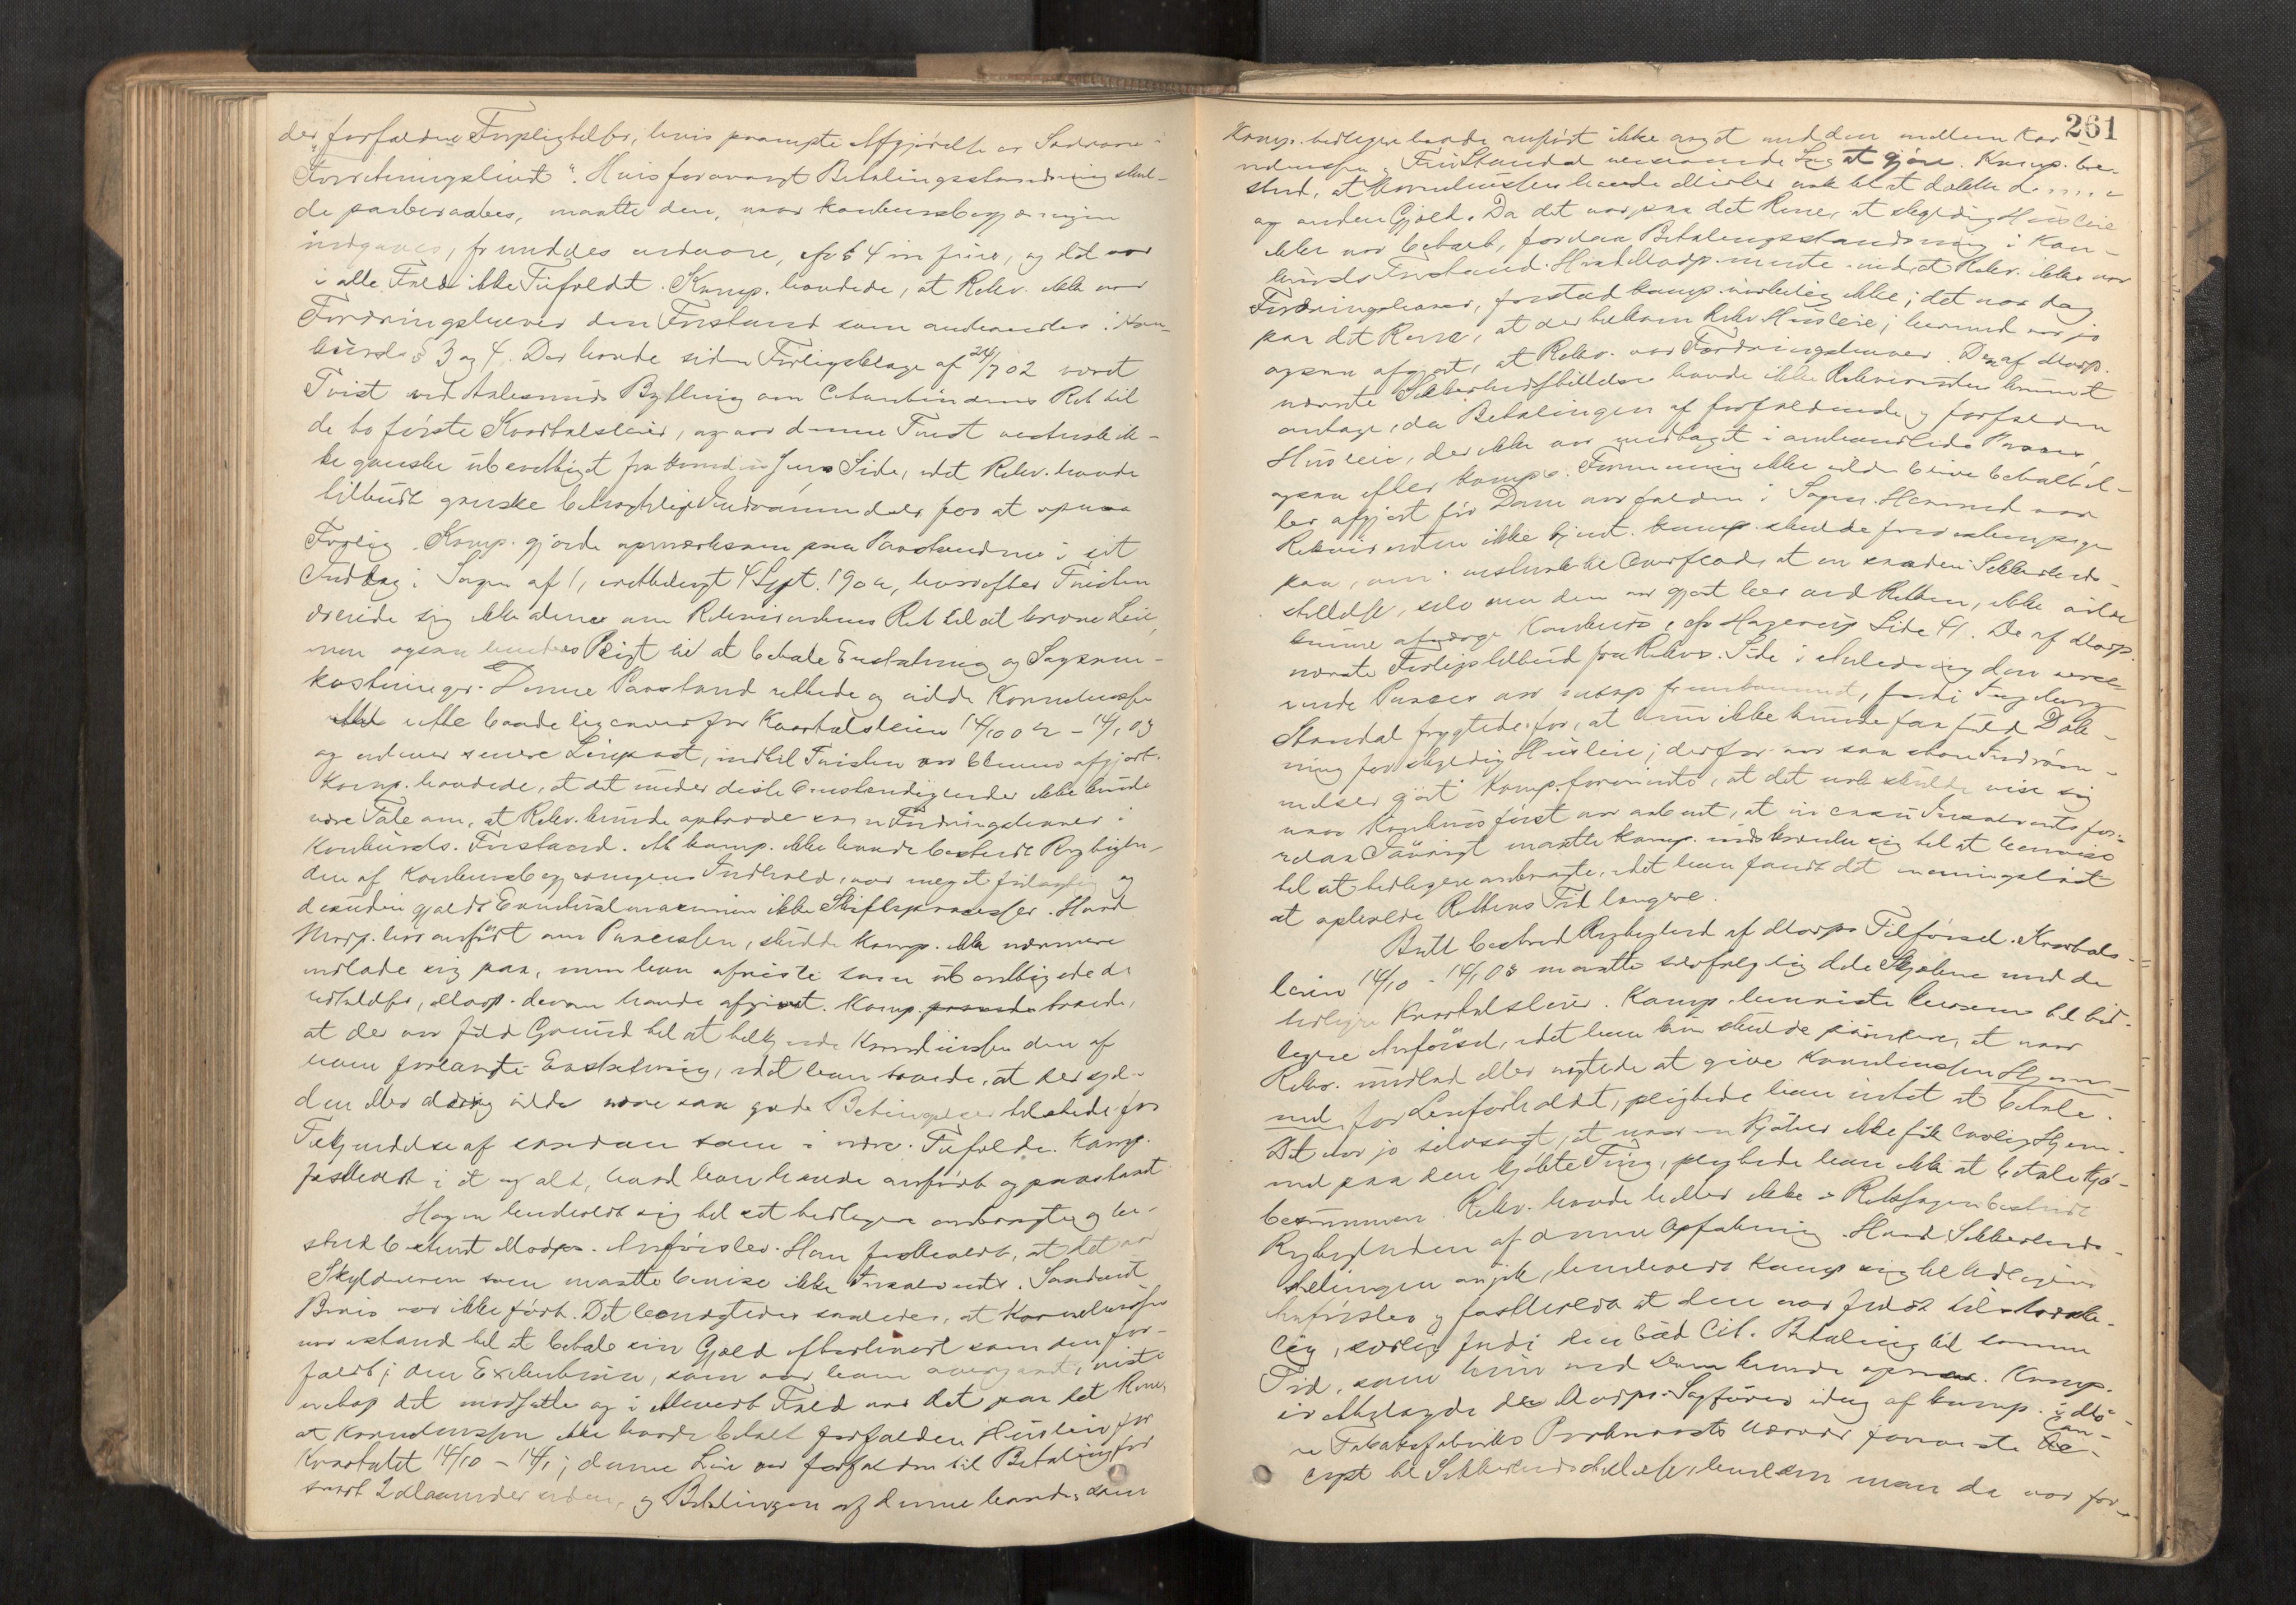 der forfaldne Forpligtelser, hvis prompte Afgjørelse er Sædvane
Forretningslivet". Hvis forøvrigt Betalingsstandsning skul-
de paaberaabes, maatte den, naar Konkursbegjæringen
indgaves, fremdeles vedvare, cfr § 4 in fine, og det var
i alle Fald ikke Tilfældet. Komp. hævdede, at Rekv. ikke var
Fordringshaver i den Forstand som omhandles i Kon-
kursl. § 3 og 4. Der havde siden Forligsklage af 24/7 02 været
Tvist ved Aalesunds Bything om Citantindens Ret til
de to første Kvartalsleier, og var denne Tvist
ganske uberettiget fra Side, idet Rekv. havde
tilbudt ganske betragtelige Indrømmelser for at opnaa
Forlig. Komp. gjorde opmærksom paa Paastandene i sit
Indlæg i Sagen af 1, 4 Sept. 1902, hvorefter Tvisten
dreiede sig ikke alene om Rekvirentens Ret til at kræve Leie,
men ogsaa hendes Pligt til at betale Erstatning og Sagsom-
kostninger. Denne Paastand rettede og Korneliussen
rette baade ligeoverfor Kvartalsleien 14/10 02 - 14/1 03
og enhver senere Leiepost, indtil Tvisten var bleven afgjort.
Komp. hævdede, at det under disse Omstændigheder ikke kunde
være Tale om, at Rekv. kunde optræde som Fordringshaver i
Konkurslovens Forstand. At Komp. ikke havde bestridt Rigtighe-
den af Konkursbegjæringens Indhold, var meget
desuden gjaldt Eventualmaximen ikke Skifteprocesser. Hvad
Modp. har anført om Processen, skulde Komp. ikke nærmere
indlade sig paa, men han afviste som uberettigede de
Udtalelser, Modp. derom havde afgivet. Komp. troede,
at der var fuld Grund til at tilkjende Korneliussen den af
ham forlangte Erstatning, idet han troede, at der sjel-
den eller aldrig vilde være saa gode Betingelser tilstede for
Tilkjendelse af saadan som i nærv. Tilfælde. Komp.
fastholdt i et og alt, hvad han havde anført og paastaaet.
Hagen henholdt sig til det tidligere anbragte og be-
stred Modps. Anførsler. Han fastholdt, at det var
Skyldneren som maatte bevise ikke Insolvents. Saadant
Bevis var ikke ført. Det benægtedes saaledes, at Korneliussen
var istand til at betale sin Gjæld efterhvert som den for-
faldt; den Exekution, som var ham overgaaet, viste
netop det modsatte og i ethvert Fald var det paa det Rene
at Korneliussen ikke havde betalt forfalden Husleie for
Kvartalet 14/10 - 14/1; denne Leie var forfalden til Betaling for
snart 2 Maaneder siden, og Betalingen af denne havde, som
261
Komp. tidligere havde anført ikke noget med den mellem Kor-
neliussen Fru Standal verserende Sag at gjøre. Komp. be-
stred, at Korneliussen havde Midler nok til at dække denne
og anden Gjæld. Da det var paa det Rene, at skyldig Husleie
ikke var betalt, forelaa Betalingsstandsning i Kon-
kurslovs Forstand. Hvad Modp. mente med, at Rekv. ikke var
Fordringshaver, forstod Komp. virkelig ikke; det var dog
paa det Rene, at der tilkom Rekv. Husleie; hermed var jo
ogsaa afgjort, at Rekv. var Fordringshaver. Den af Modp.
nævnte Sikkerhedsstillelse havde ikke Rekvirenten kunnet
antage, da Betalingen af forfaldende og forfalden
Husleie, der ikke var medtaget i omhandlede Proces,
ogsaa efter Komps. Formening ikke vilde blive betalt el-
ler afgjort før Dom var falden i Sagen. Hermed var
Rekvirenten ikke tjent. Komp. skulde forøvrigt
paa, at en saadan Sikkerheds-
stillelse, selv om den var gjort her ved Retten, ikke vilde
kunne afværge Konkurs, cfr Hagerup Side 41. De af Modp.
nævnte Forligstilbud fra Rekvs. Side i Anledning den verse-
rende Proces var netop fremkommet, fordi
Standal frygtede for, at hun ikke kunde faa fuld Dæk-
ning for skyldig Husleie; derfor var saa store Indrøm-
melser gjort. Komp. formente, at det nok skulde vise sig
naar Konkurs først var aabnet, at in casu Insolvents fore-
laa. Iøvrigt maatte Komp. indskrænke sig til at henvise
til det tidligere anbragte, idet han fandt det meningsløst
at opholde Rettens Tid længere.
Bull bestred Rigtighed af Modps Tilførsel. Kvartals-
leien 14/10 - 14/1 03 maatte selvfølgelig dele Skjæbne med de
tidligere Kvartalsleier. Komp. henviste herom til tid-
ligere Anførsel, idet han kun skulde paapeke, at naar
Rekv. undlod eller nægtede at give Korneliussen Hjem-
mel for Leieforholdet, pligtede han intet at betale.
Det var jo selvsagt, at naar en Kjøber ikke fik lovlig Hjem-
mel paa den kjøbte Ting, pligtede han ikke at betale Kjø-
besummen. Rekv. havde heller ikke i Retssagen bestridt
Rigtigheden af denne Opfatning. Hvad Sikkerheds-
stillingen angik, henholdt Komp. sig til tidligere
Anførsler og fastholdt at den var fuldt tilstrække-
lig, særlig fordi den bød Cit. Betaling til samme
Tid, som hun ved Dom kunde opnaa. Komp.
Modps. Sagfører idag af Komp. i
Tobaksfabriks Nærvær foreviste
cept til Sikkerhedsstillelse, hvilken man da var for-